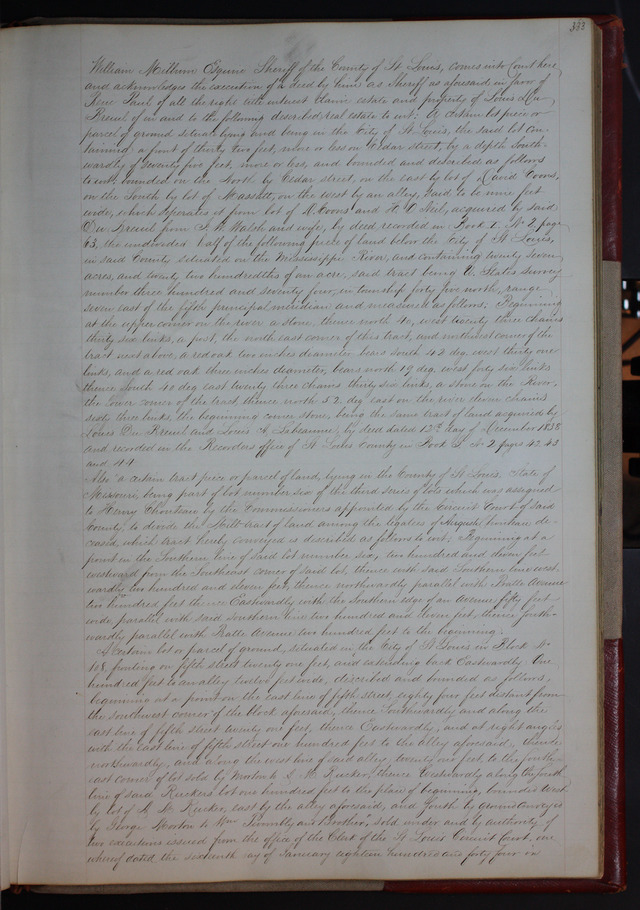 333
William Milburn Esquire Sheriff of the County of St Louis, comes into Court here
and acknowledges the execution of a deed by him as Sheriff as aforesaid, in favor of
Rene Paul of all the right title interest claim estate and property of Louis Du
Breuil of in and to the following described real estate to wit: A certain lot piece or
parcel of ground situate lying and being in the City of St Louis, the said lot con
taining a front of thirty two feet, more or less on Cedar street, by a depth South
wardly of seventy five feet, more or less, and bounded and described as follows
to wit, bounded on the North by Cedar street, on the east by lot of David Coons,
on the South by lot of Massott, on the west by an alley, said to be nine feet
wide, which seperates it from lot of D. Coons and H. O Neil, acquired by said
Du Breuil from J. B. Walsh and wife, by deed recorded in Book No 2. page
63, the undivided half of the following piece of land below the City of St Louis,
in said County situated on the Mississippi River, and containing twenty seven
acres, and twenty two hundredths of an acre, said tract being U. States survey
number three hundred and seventy four, in township forty five north, range
seven east of the fifth principal meridian and measured as follows. Beginning
at the upper corner on the river a stone, thence north 40, west twenty three chains
thirty six links, a post, the north east corner of this tract, and northwest corner of the
tract next above, a red oak two inches diameter bears south 42 deg, west thirty one
links, and a red oak three inches diameter, bears north 19 deg, west forty six links
thence South 40 deg east twenty three chains thirty six links, a stone on the River,
the lower corner of the tract, thence north 52 deg, east on the river eleven chains
sixty three links, the beginning corner stone, being the same tract of land acquired by
Louis Du Breuil and Louis A. Labeaume, by deed dated 12th day of December 1838
and recorded in the Recorders office of St Louis County in Book No 2 pages 42 43
and 44
Also a certain tract piece or parcel of land, lying in the County of St Louis, State of
Missouri, being part of lot number six of the third series of lots which was assigned
to Henry Chouteau by the Commissioners appointed by the Circuit Court of said
County, to divide the Mill tract of land among the legatees of Auguste Chouteau de
ceased, which tract hereby conveyed is described as follows to wit; Beginning at a
point in the Southern line of said lot number six, two hundred and eleven feet
westward from the Southeast corner of said lot, thence with said Southern line west
wardly two hundred and eleven feet, thence northwardly parallel with Pratte Avenue
two hundred feet thence Eastwardly with the Southern edge of an Avenue fifty feet
wide, parallel with said southern line two hundred and eleven feet, thence south
wardly parallel with Pratte Avenue two hundred feet to the beginning.
A certain lot or parcel of ground, situated in the City of St Louis in Block No
108, fronting on fifth street twenty one feet, and extending back Eastwardly One
hundred feet to an alley twelve feet wide, described and bounded as follows,
beginning at a point on the east line of fifth street, eighty four feet distant from
the southwest corner of the block aforesaid, thence Northwardly and along the
east line of fifth street twenty one feet, thence Eastwardly, and at right angles
with the east line of fifth street one hundred feet to the alley aforesaid, thence
southwardly, and along the west line of said alley, twenty one feet, to the
east corner of lot sold by Morton to S. M. Rucker, thence Westwardly along the
line of said Ruckers lot one hundred feet to the place of beginning, bounded West
by lot of S. M. Rucker, east by the alley aforesaid, and South by
by George Morton to Wm and Brother, sold under and by authority of
two executions issued from the office of the Clerk of the St Louis Circuit Court, one
whereof dated the sixteenth day of January eighteen hundred and forty four in